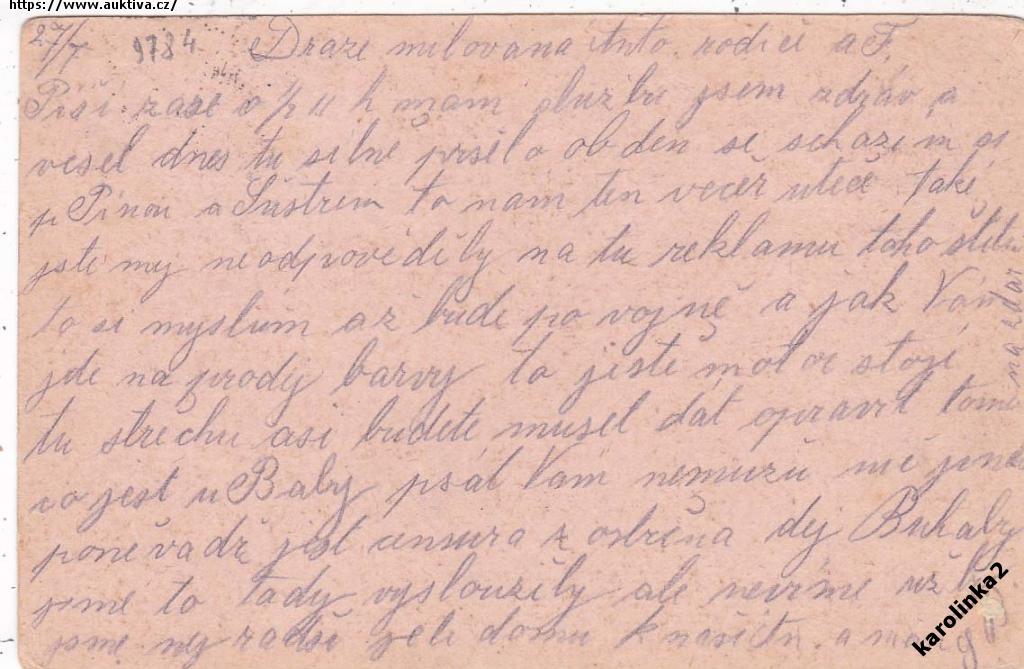 https://www.auktiva.cz/
27/7 9784 Draze milovana rodiči a F.
Piši zase o 1/2 11 h mam službu jsem zdráv a
vesel dnes tu silně pršelo ob den se schazím si
p Pinou a Šustrem to nám ten večer uteče také
jste my neodpověděly na tu reklamu toho
to si myslim až bude po vojně a jak Vám
jde na prodej barvy to ještě motor stojí
tu střechu asi budete muset dát opravit
co jest u Baby psát Vám nemužu nic jine
poněvadž jest censura dej Buh aby
jsme to tady vysloužily ale nevíme už
jsme nej radši jeli domu k našem a
na zdar
karolinka2